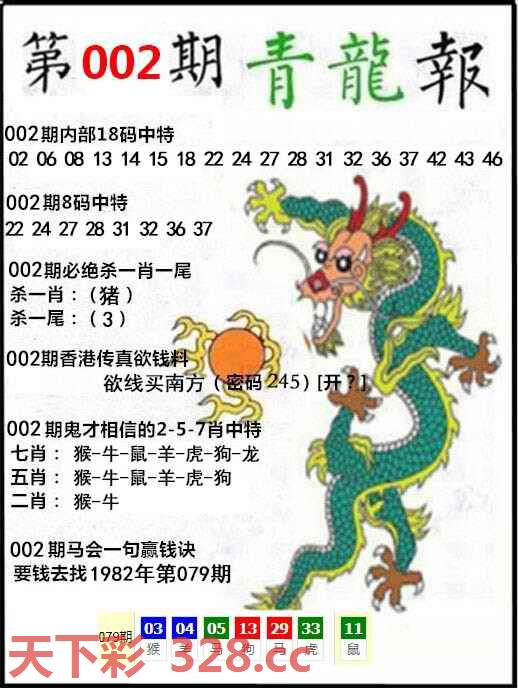 第002期青龍報
002期内部18码中特
02 06 08 13 14 15 18 22 24 27 28 31 32 36 37 42 43 46
002期8码中特
22 24 27 28 31 32 36 37
002期必绝杀一肖一尾
杀一肖：（猪）
杀一尾：（3）
002期香港传真欲钱料
欲线买南方（密码245）[开？]
002期鬼才相信的2-5-7肖中特
七肖：猴-牛-鼠-羊-虎-狗-龙
五肖：猴-牛-鼠-羊-虎-狗
二肖：猴-牛
002期马会一句赢钱诀
要钱去找1982年第079期
079期 03 04 05 13 29 33 11
猴 羊 马 狗 马 虎 鼠
天下彩 328.cc